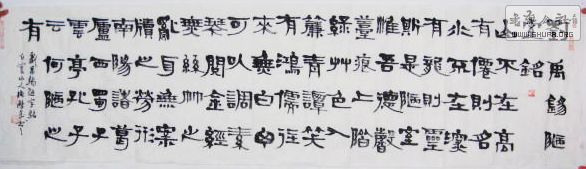 劉禹錫陋
室銘
山不在高
有僊則名
水不在深
有龍則靈
斯是陋室
惟吾德馨
薹痕上階
綠艸色入
簾青談笑
有鴻儒往
來無白丁
可以調素
琴閱金經
無絲竹之
亂耳無案
牘之勞形
南陽諸葛
廬西蜀子
雲亭孔子
云何陋之
有
劉禹錫陋室銘
www.shufa.org